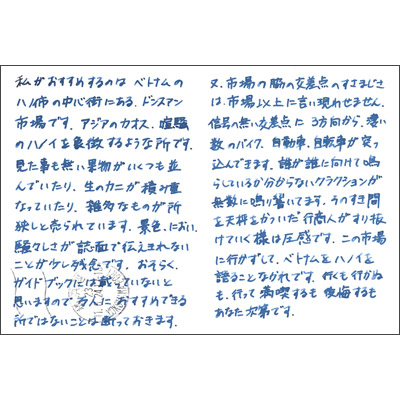 私がおすすめするのは ベトナムの
ハノイ市の中心街にある、ドンスアン
市場です。アジアのカオス、喧騒
のハノイを象徴するような所です。
見た事も無い果物がいくつも並
んでいたり、生のカニが積み重
なっていたり、雑多なものが所
狭しと売られています。景色、におい、
騒々しさが誌面で伝えきれない
ことが少し残念です。おそらく、
ガイドブックには載っていないと
思いますので万人におすすめできる
所ではないことは断っておきます。
又、市場の脇の交差点のすさまじさ
は、市場以上に言い現わせません。
信号の無い交差点に3方向から、凄い
数のバイク、自動車、自転車が突っ
込んできます。誰が誰に向けて鳴
らしているか分からないクラクションが
無数に鳴り響いてます。そのすき間
を天秤をかついだ行商人がすり抜
けていく様は圧感です。この市場
に行かずして、ベトナムをハノイを
語ることなかれです。行くも行かぬ
も、行って満喫するも後悔するも
あなた次第です。